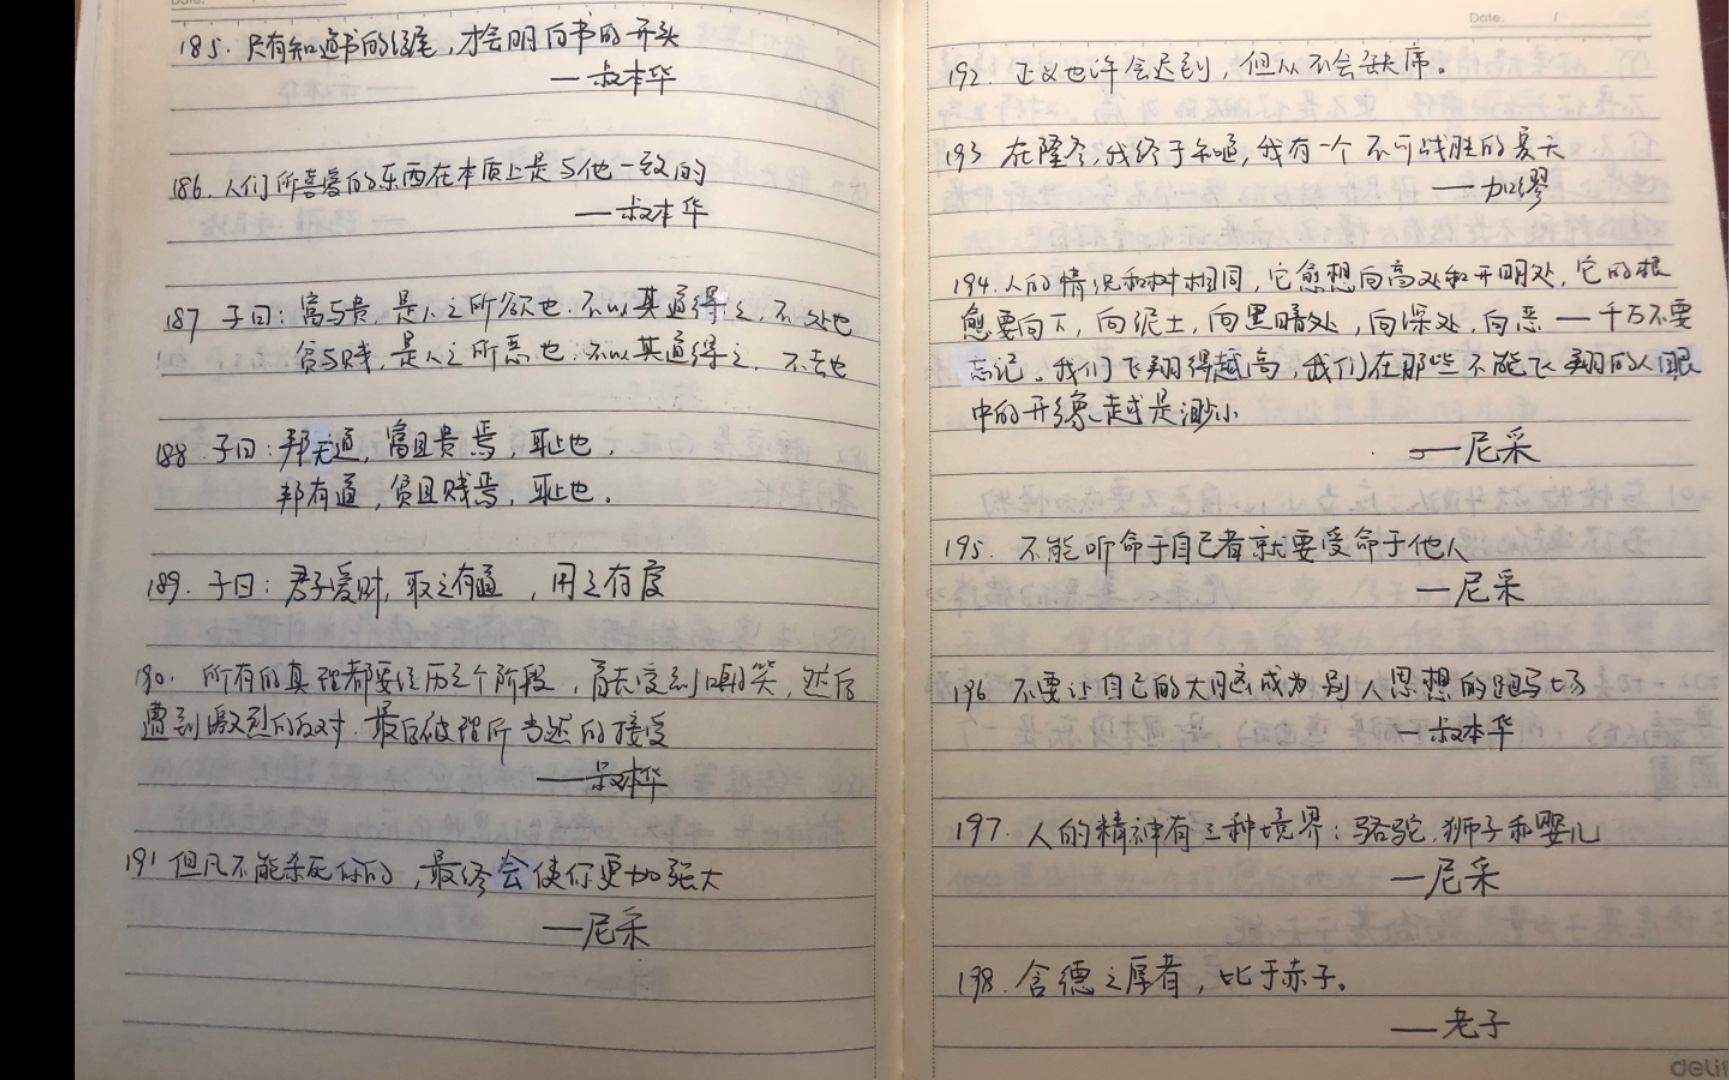 185. 只有知道书的结尾，才会明白书的开头
—叔本华
186. 人们所喜爱的东西在本质上是与他一致的
—叔本华
187 子曰：富与贵，是人之所欲也，不以其道得之，不处也
贫与贱，是人之所恶也，不以其道得之，不去也
188. 子曰：邦无道，富且贵焉，耻也，
邦有道，贫且贱焉，耻也。
189. 子曰：君子爱财，取之有道，用之有度
190. 所有的真理都要经历三个阶段，首先受到嘲笑，然后
遭到激烈的反对，最后被理所当然的接受
——叔本华
191 但凡不能杀死你的，最终会使你更加强大
—尼采
Date. /
192. 正义也许会迟到，但从不会缺席。
193 在隆冬，我终于知道，我有一个不可战胜的夏天
——加缪
194. 人的情况和树相同，它愈想向高处和开明处，它的根
愈要向下，向泥土，向黑暗处，向深处，向恶—千万不要
忘记。我们飞翔得越高，我们在那些不能飞翔的人眼
中的形象越是渺小
——尼采
195. 不能听命于自己者就要受命于他人
—尼采
196. 不要让自己的大脑成为别人思想的跑马场
—叔本华
197. 人的精神有三种境界：骆驼，狮子和婴儿
—尼采
198. 含德之厚者，比于赤子。
——老子